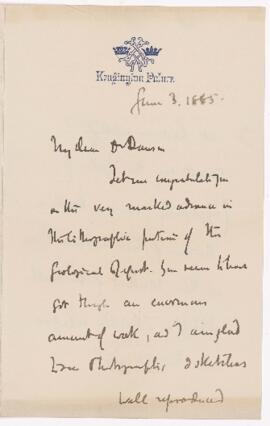 Kensington Palace
June 3. 1885.
My dear Dr Dawson
Let me congratulate you
on the very marked advance in
the lithographic portion of the
Geological Report. You seem to have
got through an enormous
amount of work, and I am glad
to see Photographs, & sketches
well reproduced